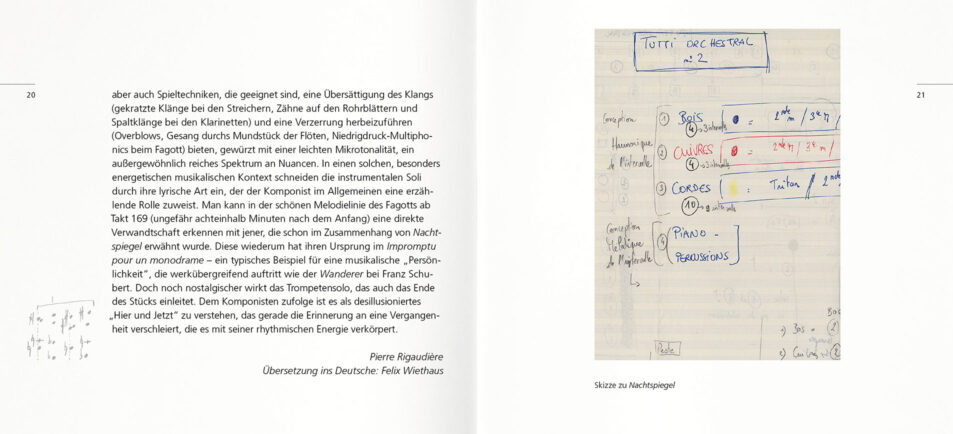 20
aber auch Spieltechniken, die geeignet sind, eine Übersättigung des Klangs
(gekratzte Klänge bei den Streichern, Zähne auf den Rohrblättern und
Spaltklänge bei den Klarinetten) und eine Verzerrung herbeizuführen
(Overblows, Gesang durchs Mundstück der Flöten, Niedrigdruck-Multipho-
nics beim Fagott) bieten, gewürzt mit einer leichten Mikrotonalität, ein
außergewöhnlich reiches Spektrum an Nuancen. In einen solchen, besonders
energetischen musikalischen Kontext schneiden die instrumentalen Soli
durch ihre lyrische Art ein, der der Komponist im Allgemeinen eine erzäh-
lende Rolle zuweist. Man kann in der schönen Melodielinie des Fagotts ab
Takt 169 (ungefähr achteinhalb Minuten nach dem Anfang) eine direkte
Verwandtschaft erkennen mit jener, die schon im Zusammenhang von Nacht-
spiegel erwähnt wurde. Diese wiederum hat ihren Ursprung im Impromptu
pour un monodrame – ein typisches Beispiel für eine musikalische „Persön-
lichkeit“, die werkübergreifend auftritt wie der Wanderer bei Franz Schu-
bert. Doch noch nostalgischer wirkt das Trompetensolo, das auch das Ende
des Stücks einleitet. Dem Komponisten zufolge ist es als desillusioniertes
„Hier und Jetzt“ zu verstehen, das gerade die Erinnerung an eine Vergangen-
heit verschleiert, die es mit seiner rhythmischen Energie verkörpert.
Pierre Rigaudière
Übersetzung ins Deutsche: Felix Wiethaus
21
TUTTI ORCHESTRAL
n° 2
Conception
Harmonique
1) BOIS = 2nde m / 3ce M /
4
2) CUIVRES = 2nde M / 3ce m /
4
3) CORDES = Triton / 2nde
10
Conception
4) PIANO -
PERCUSSIONS
1) Bois = (2)
2)
Skizze zu Nachtspiegel